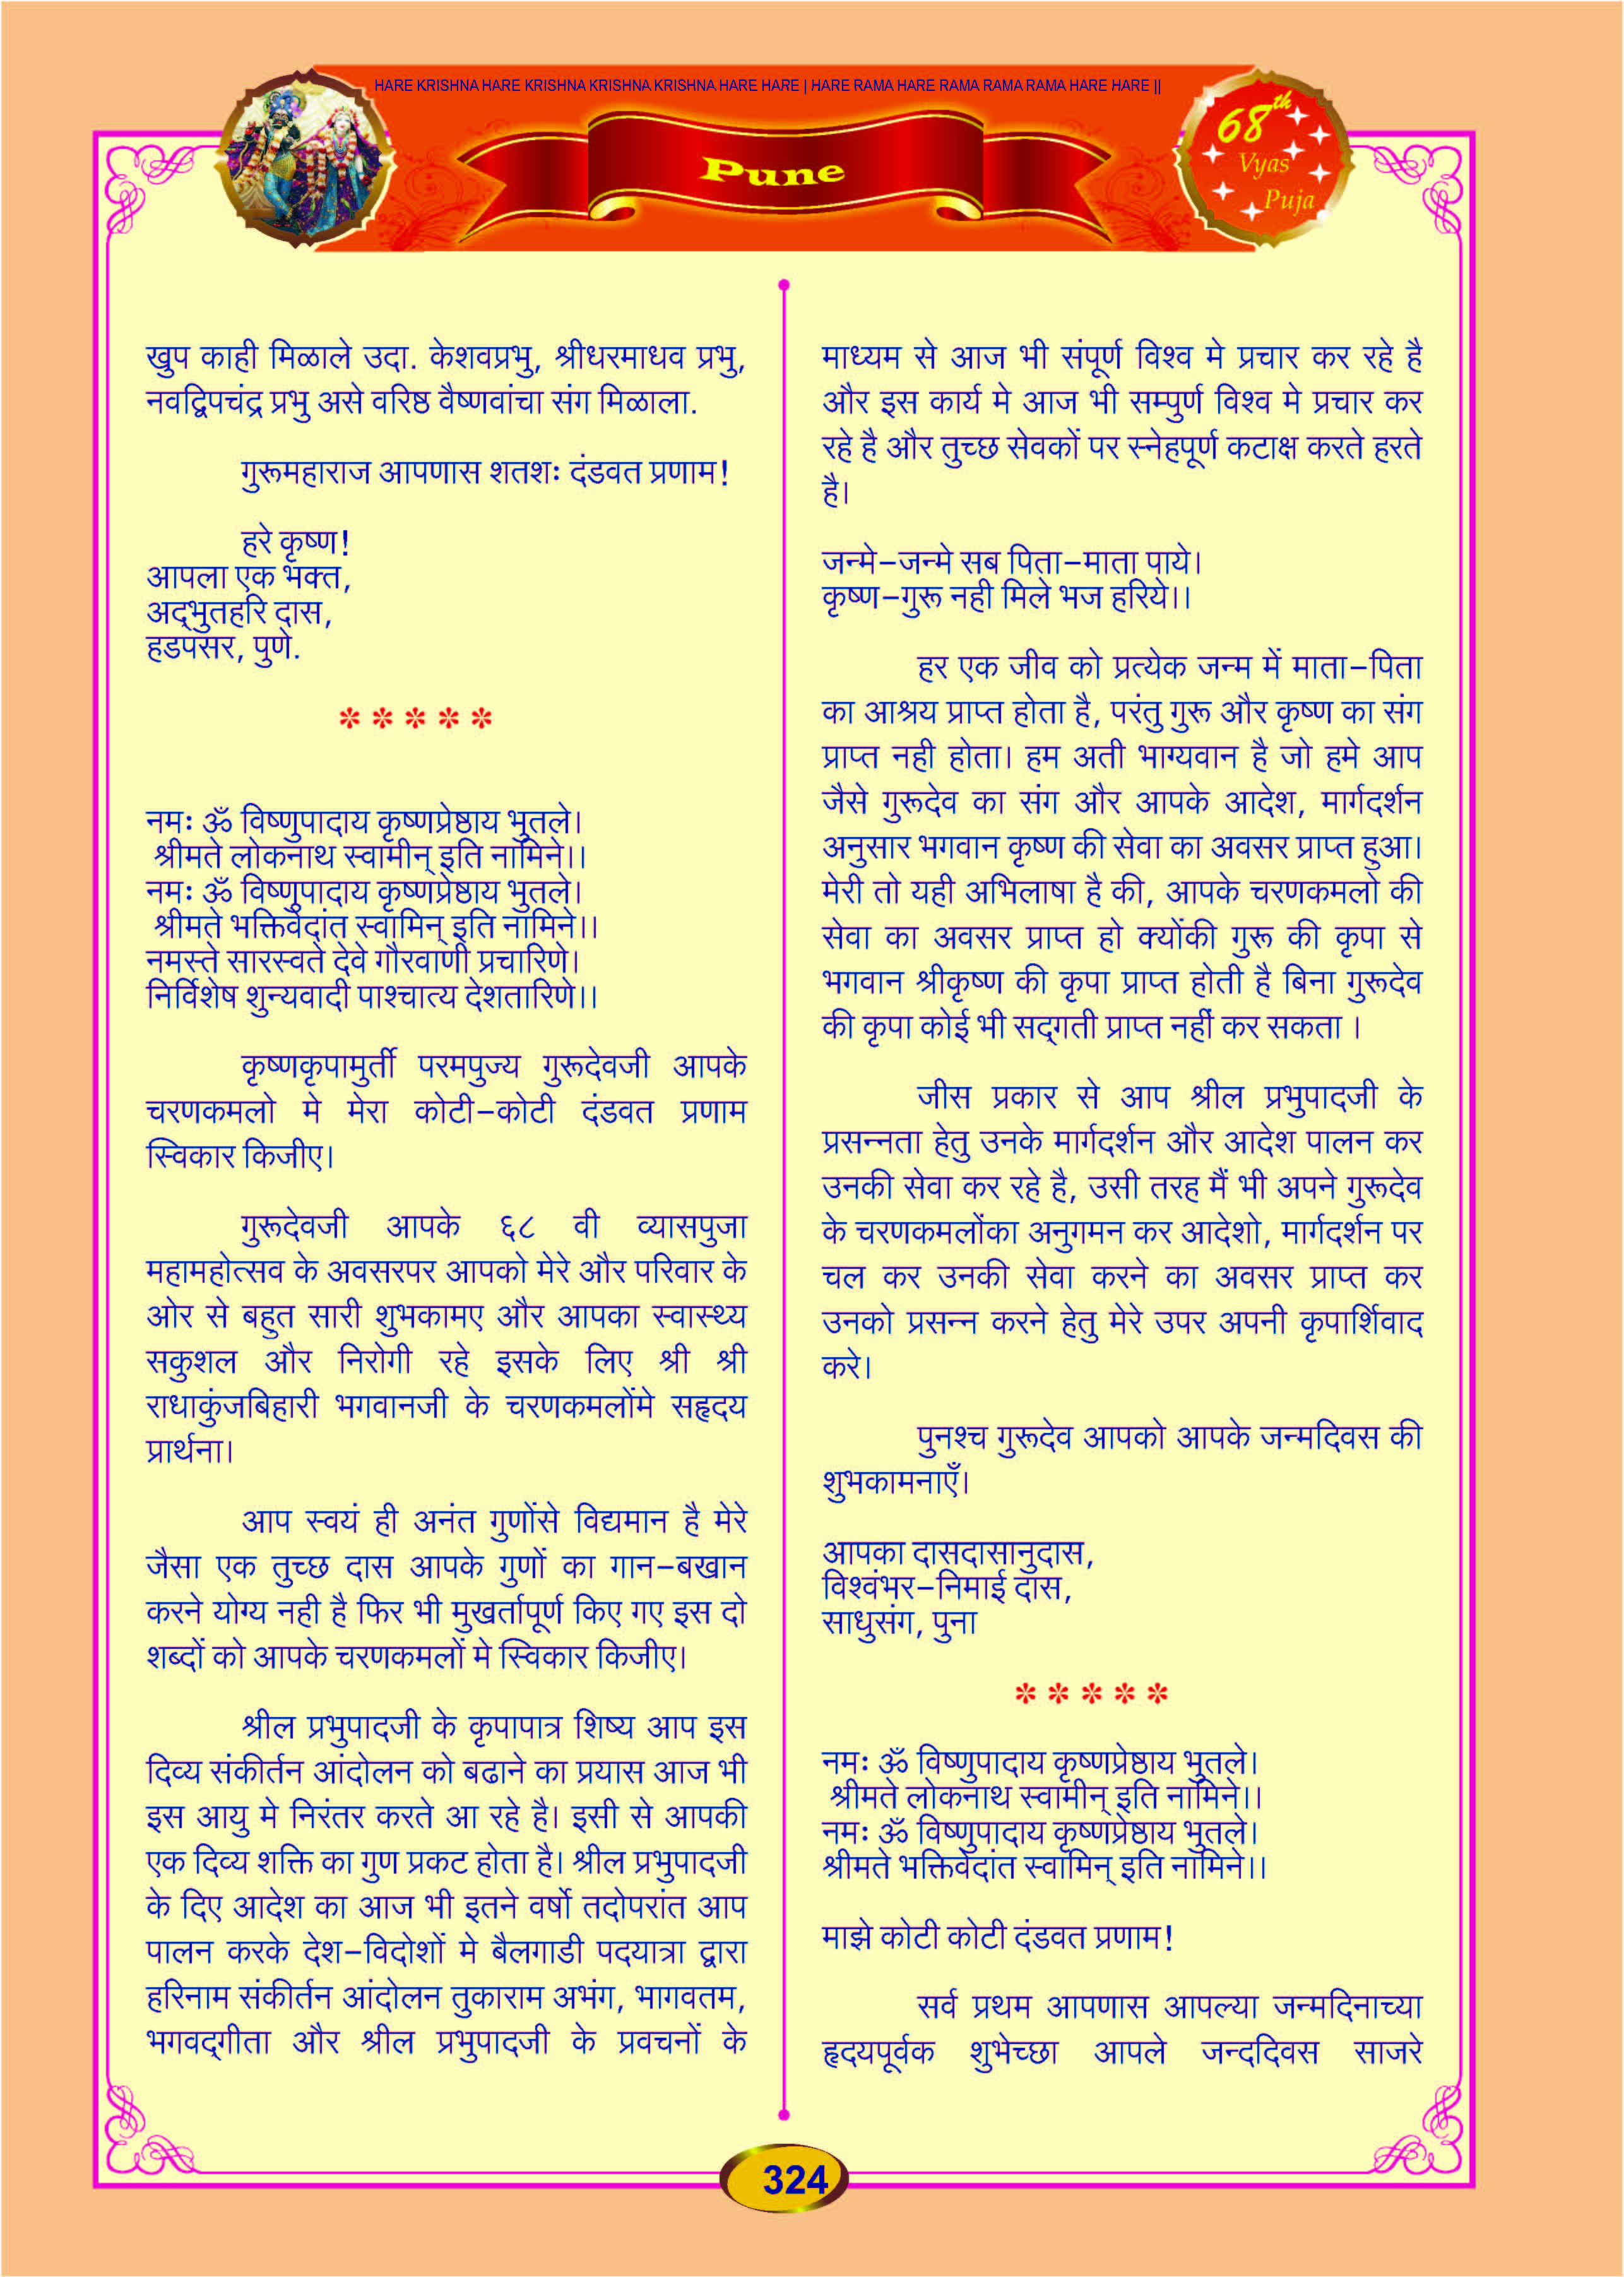 HARE KRISHNA HARE KRISHNA KRISHNA KRISHNA HARE HARE | HARE RAMA HARE RAMA RAMA RAMA HARE HARE ||
Pune
68th
Vyas
Puja
खुप काही मिळाले उदा. केशवप्रभु, श्रीधरमाधव प्रभु,
नवद्विपचंद्र प्रभु असे वरिष्ठ वैष्णवांचा संग मिळाला.
गुरूमहाराज आपणास शतशः दंडवत प्रणाम!
हरे कृष्ण!
आपला एक भक्त,
अद्भुतहरि दास,
हडपसर, पुणे.
* * * * *
नमः ॐ विष्णुपादाय कृष्णप्रेष्ठाय भुतले।
श्रीमते लोकनाथ स्वामीन् इति नामिने।।
नमः ॐ विष्णुपादाय कृष्णप्रेष्ठाय भुतले।
श्रीमते भक्तिवेदांत स्वामिन् इति नामिने।।
नमस्ते सारस्वते देवे गौरवाणी प्रचारिणे।
निर्विशेष शुन्यवादी पाश्चात्य देशतारिणे।।
कृष्णकृपामुर्ती परमपुज्य गुरूदेवजी आपके
चरणकमलो मे मेरा कोटी-कोटी दंडवत प्रणाम
स्विकार किजीए।
गुरूदेवजी आपके ६८ वी व्यासपुजा
महामहोत्सव के अवसरपर आपको मेरे और परिवार के
ओर से बहुत सारी शुभकामए और आपका स्वास्थ्य
सकुशल और निरोगी रहे इसके लिए श्री श्री
राधाकुंजबिहारी भगवानजी के चरणकमलोंमे सहृदय
प्रार्थना।
आप स्वयं ही अनंत गुणोंसे विद्यमान है मेरे
जैसा एक तुच्छ दास आपके गुणों का गान-बखान
करने योग्य नही है फिर भी मुखर्तापूर्ण किए गए इस दो
शब्दों को आपके चरणकमलों मे स्विकार किजीए।
श्रील प्रभुपादजी के कृपापात्र शिष्य आप इस
दिव्य संकीर्तन आंदोलन को बढाने का प्रयास आज भी
इस आयु मे निरंतर करते आ रहे है। इसी से आपकी
एक दिव्य शक्ति का गुण प्रकट होता है। श्रील प्रभुपादजी
के दिए आदेश का आज भी इतने वर्षो तदोपरांत आप
पालन करके देश-विदोशों मे बैलगाडी पदयात्रा द्वारा
हरिनाम संकीर्तन आंदोलन तुकाराम अभंग, भागवतम,
भगवद्गीता और श्रील प्रभुपादजी के प्रवचनों के
माध्यम से आज भी संपूर्ण विश्व मे प्रचार कर रहे है
और इस कार्य मे आज भी सम्पुर्ण विश्व मे प्रचार कर
रहे है और तुच्छ सेवकों पर स्नेहपूर्ण कटाक्ष करते हरते
है।
जन्मे-जन्मे सब पिता-माता पाये।
कृष्ण-गुरू नही मिले भज हरिये।।
हर एक जीव को प्रत्येक जन्म में माता-पिता
का आश्रय प्राप्त होता है, परंतु गुरू और कृष्ण का संग
प्राप्त नही होता। हम अती भाग्यवान है जो हमे आप
जैसे गुरूदेव का संग और आपके आदेश, मार्गदर्शन
अनुसार भगवान कृष्ण की सेवा का अवसर प्राप्त हुआ।
मेरी तो यही अभिलाषा है की, आपके चरणकमलो की
सेवा का अवसर प्राप्त हो क्योंकी गुरू की कृपा से
भगवान श्रीकृष्ण की कृपा प्राप्त होती है बिना गुरूदेव
की कृपा कोई भी सद्गती प्राप्त नहीं कर सकता ।
जीस प्रकार से आप श्रील प्रभुपादजी के
प्रसन्नता हेतु उनके मार्गदर्शन और आदेश पालन कर
उनकी सेवा कर रहे है, उसी तरह मैं भी अपने गुरूदेव
के चरणकमलोंका अनुगमन कर आदेशो, मार्गदर्शन पर
चल कर उनकी सेवा करने का अवसर प्राप्त कर
उनको प्रसन्न करने हेतु मेरे उपर अपनी कृपार्शिवाद
करे।
पुनश्च गुरूदेव आपको आपके जन्मदिवस की
शुभकामनाएँ।
आपका दासदासानुदास,
विश्वंभर-निमाई दास,
साधुसंग, पुना
* * * * *
नमः ॐ विष्णुपादाय कृष्णप्रेष्ठाय भुतले।
श्रीमते लोकनाथ स्वामीन् इति नामिने।।
नमः ॐ विष्णुपादाय कृष्णप्रेष्ठाय भुतले।
श्रीमते भक्तिवेदांत स्वामिन् इति नामिने।।
माझे कोटी कोटी दंडवत प्रणाम!
सर्व प्रथम आपणास आपल्या जन्मदिनाच्या
हृदयपूर्वक शुभेच्छा आपले जन्ददिवस साजरे
324